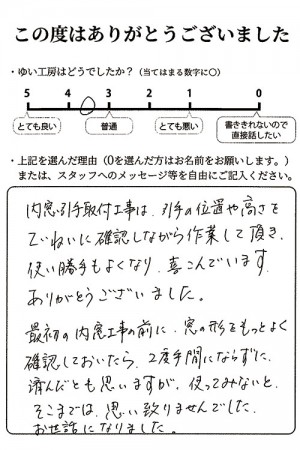 この度はありがとうございました
・ゆい工房はどうでしたか？（当てはまる数字に○）
5 4 3 2 1 0
とても良い 普通 とても悪い 書ききれないので直接話したい
・上記を選んだ理由（0を選んだ方はお名前をお願いします。）
または、スタッフへのメッセージ等を自由にご記入ください。
内窓引手取付工事は、引手の位置や高さを
ていねいに確認しながら作業して頂き、
使い勝手もよくなり、喜こんでいます。
ありがとうございました。
最初の内窓工事の前に、窓の形をもっとよく
確認しておいたら、2度手間にならずに、
済んだとも思いますが、使ってみないと、
そこまでは、思い致りませんでした。
お世話になりました。